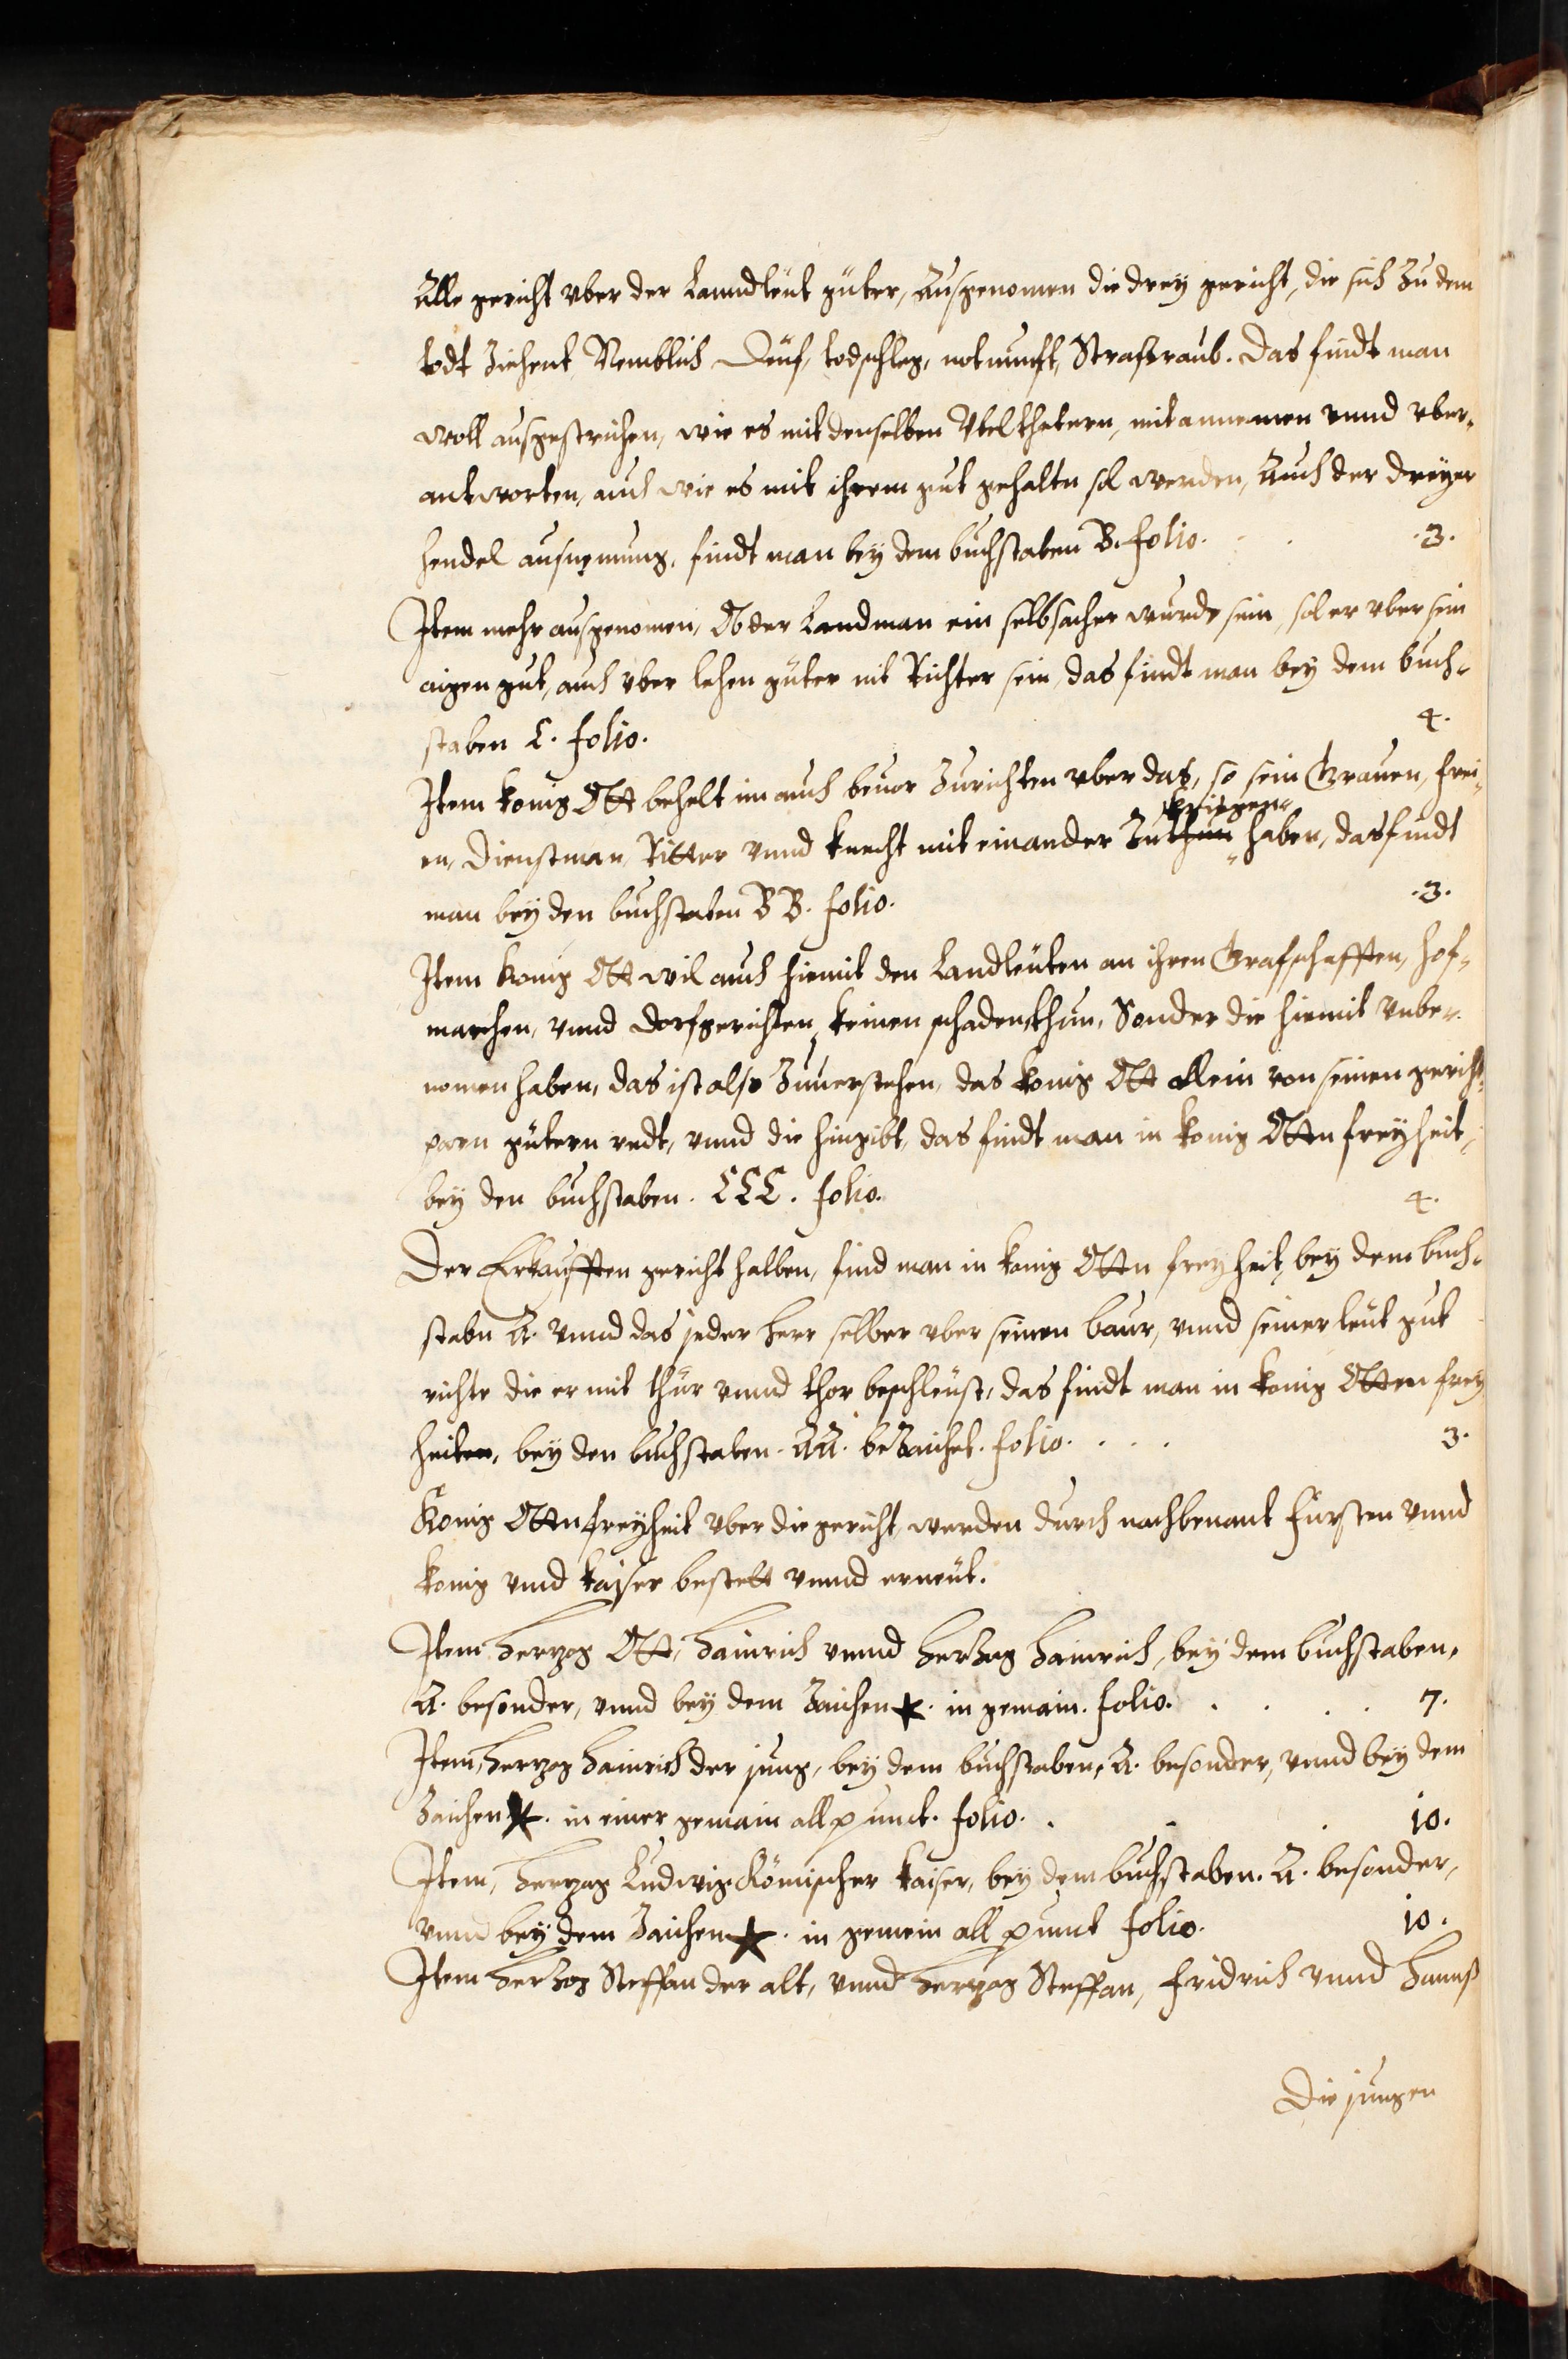 Alle gericht vber der Lanndleüt güter, Ausgenomen die drey gericht, die sich Zu dem
todt Ziehent, Nemblich Deüf, todschleg, notnunft, Straßraub. Das findt man
woll ausgestrichen, wie es mit denselben Vbelthetern, mit annemen vnnd vber¬
antworten, auch wie es mit ihrem gut gehaltn sol werden, Auch der dreyer
hendel ausnemung, findt man bey dem buchstaben B. folio. .3.
Item mehr ausgenomen, Ob der Landman ein selbsacher wurde sein, sol er vber sein
aigen gut, auch vber lehen güter nit Richter sein, das findt man bey dem buch¬
staben C. folio. 4.
Item konig Ott behelt im auch beuor Zurichten vber das, so sein Grauen, frei¬
en, Dienstman, Ritter vnnd knecht mit einander Zuthun kriegen haben, das findt
man bey den buchstaben BB. folio. .3.
Item konig Ott wil auch hiemit den Landleuten an ihren Grafschafften, hof¬
marchen, vnnd dorfgerichten, keinen schaden thun, Sonder die hiemit vnbe¬
nomen haben, das ist also Zuuerstehen, das konig Ott allein von seinen gericht¬
paren gütern redt, vnnd die hingibt, das findt man in konig Otten freyheit,
bey den buchstaben. CCC. folio. 4.
Der Erkaufften gericht halben, find man in konig Ottn freyheit, bey dem buch¬
stabn A. vnnd das jeder herr selber vber seinen baur, vnnd seiner leüt gut
richte die er mit thür vnnd thor beschleust, das findt man in konig Otten frey
heiten, bey den buchstaben. AA. beZaichet. folio. . . . 3.
Konig Ottn freyheit vber die gericht, werden durch nachbenant fürsten vnnd
konig vnd kaiser bestett vnnd erneüt.
Item herzog Ott, Hainrich vnnd herzog Hainrich, bey dem buchstaben,
A. besonder, vnnd bey dem Zaichen ★. in gemain. folio. . . . . 7.
Item, herzog Hainrich der jung, bey dem buchstaben, A. besonder, vnnd bey dem
Zaichen ★. in einer gemain all punct. folio. . . . 10.
Item, herzog Ludwig Römischer kaiser, bey dem buchstaben. A. besonder,
vnnd bey dem Zaichen ★. in gemein all punct folio. 10.
Item herzog Steffan der alt, vnnd herzog Steffan, Fridrich vnnd Hannß
Die jungen